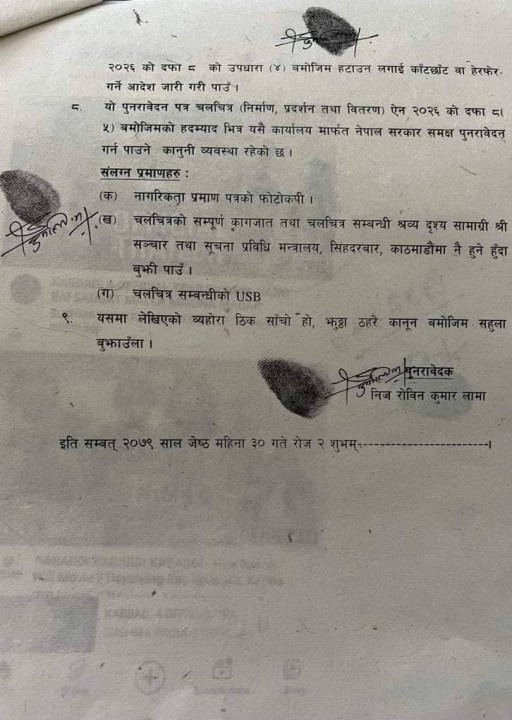 २०२६ को दफा ८ को उपधारा (४) बमोजिम हटाउन लगाई काँटछाँट वा हेरफेर
गर्ने आदेश जारी गरी पाउँ ।
८. यो पुनरावेदन पत्र चलचित्र (निर्माण, प्रदर्शन तथा वितरण) ऐन २०२६ को दफा ८(
५) बमोजिमको हदम्याद भित्र यसै कार्यालय मार्फत नेपाल सरकार समक्ष पुनरावेदन
गर्न पाउने कानुनी व्यवस्था रहेको छ ।
संलग्न प्रमाणहरु :
(क) नागरिकता प्रमाण पत्रको फोटोकपी ।
(ख) चलचित्रको सम्पूर्ण कागजात तथा चलचित्र सम्वन्धी श्रव्य दृश्य सामाग्री श्री
सञ्चार तथा सूचना प्रविधि मन्त्रालय, सिंहदरबार, काठमाडौंमा नै हुने हुँदा
बुझी पाउँ ।
(ग) चलचित्र सम्बन्धीको USB
९. यसमा लेखिएको व्यहोरा ठिक साँचो हो, झुठ्ठा ठहरे कानून बमोजिम सहुला
बुझाउँला ।
पुनरावेदक
निज रोविन कुमार लामा
इति सम्बत् २०७९ साल जेष्ठ महिना ३० गते रोज २ शुभम्-----------------------।
KABADDI KABADDI KABADDI
KABBADI 4 OFFICIAL